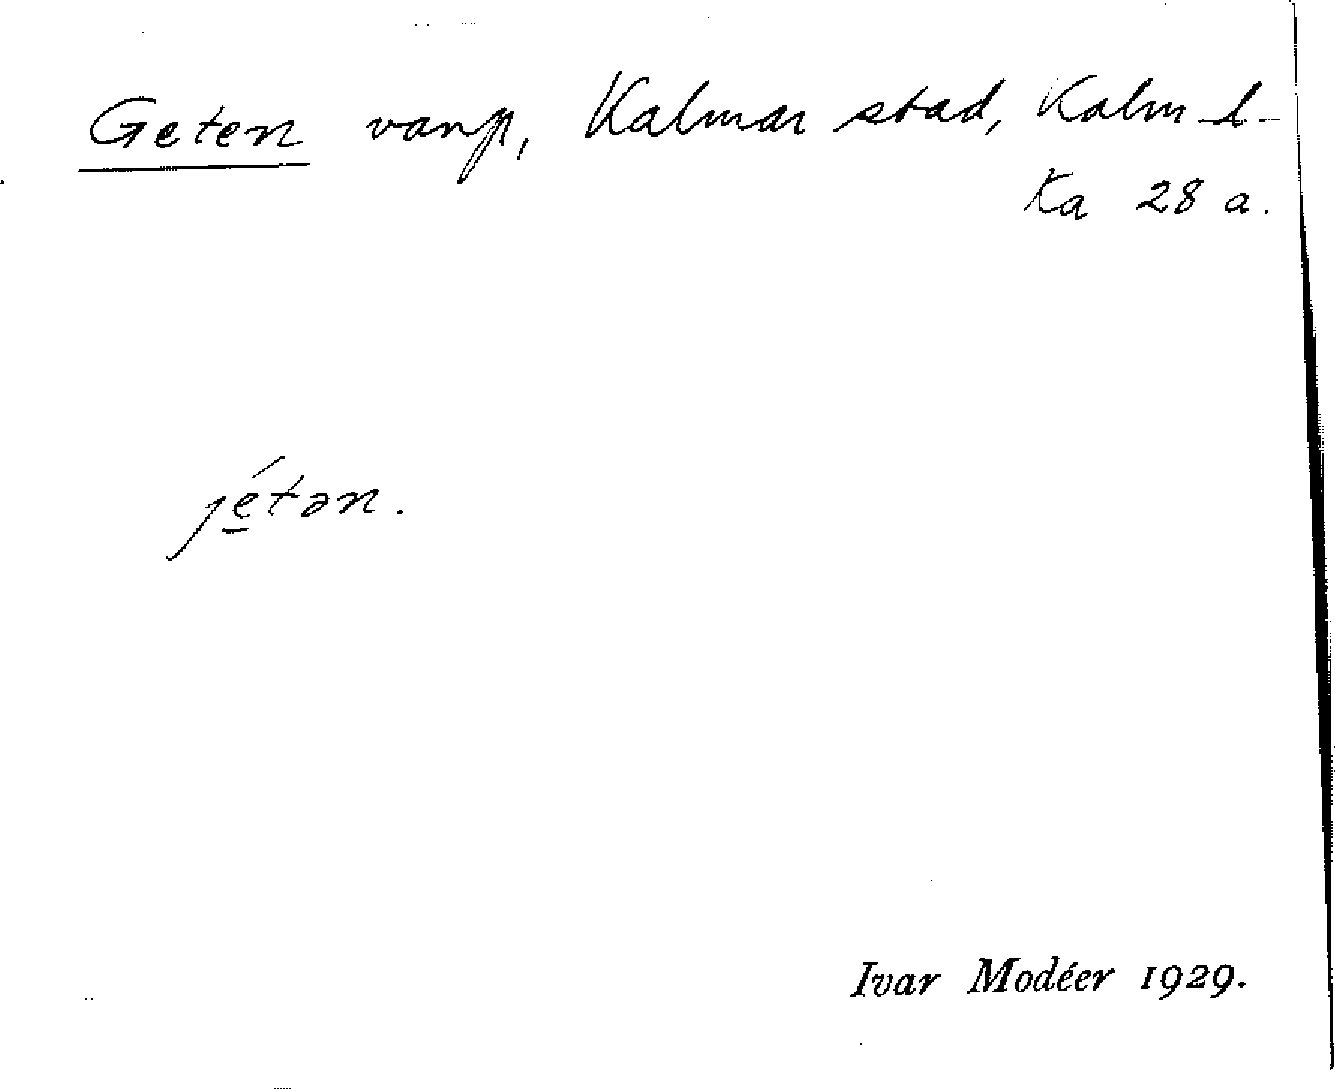 Geten varp, Kalmar stad, Kalm l.
Ka 28 a.
jé̱tən.
Ivar Modéer 1929.